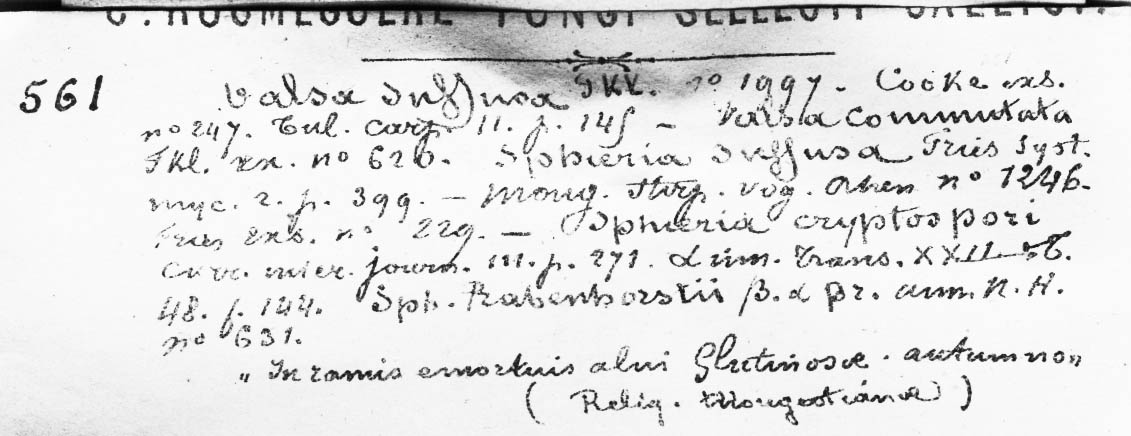 C. ROUMEGUERE FUNGI SELECTI GALLICI.
561 Valsa suffusa Fkl. nº 1997. Cooke exs.
nº 247. Tul. carp. II. p. 145 — Valsa commutata
Fkl. xx. nº 620. Sphæria suffusa Fries Syst.
myc. 2. p. 399. — Moug. Stirp. vog. nº 1246.
Fries exs. nº 229. — Sphæria cryptospori
Curr. micr. journ. III. p. 271. & Linn. Trans. XXII
48. f. 144. Sph. Rabenhorstii B. & Br. ann. N. H.
nº 631.
„ In ramis emortuis alni Glutinosæ. autumno „
( Reliq. Mougeotianæ )